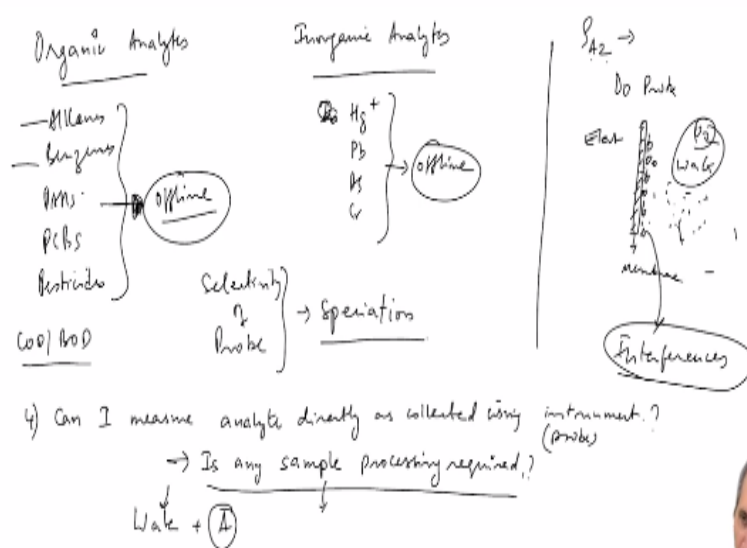 Organic Analytes
Alkanes
Benzenes
PAHs
PCBs
Pesticides
COD/BOD
offline
Inorganic Analytes
Hg+
Pb
As
Cr
offline
Selectivity
of
Probe
→ Speciation
ρA2 →
DO Probe
Elect
O2
Water
membrane
Interferences
4) Can I measure analyte directly as collected using instrument?
(probe)
→ Is any sample processing required?
Water + A